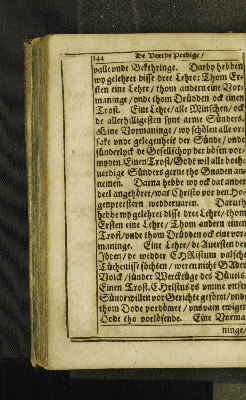 144 De Veerde Predige/
valle vnde Bekehringe. Darby hebben
wy gelehret disse dree Lehre: Thom Er-
sten eine Lehre/ thom andern eine Vor-
maninge/ vnde thom Drüdden ock einen
Trost. Eine Lehre/ alle Minschen/ ock
de allerhilligesten synt arme Sünders.
Eine Vormaninge/ wy schölen alle or-
sake vnde gelegenheit der Sünde/ vnde
sünderlyck de Gesellschop der bösen vor-
myden. Einen Trost/ Godt wil alle both-
uerdige Sünders gerne tho Gnaden an-
nemen. Darna hebbe wy ock dat ander
deel angehöret/ wat Christo vor den Ho-
genpreestern wedderuaren. Daruth
hebbe wy gelehret disse dree Lehre/ thom
Ersten eine Lehre/ Thom andern einen
Trost/ vnde thom Drüdden ock eine vor-
maninge. Eine Lehre/ de Auersten der
Jöden/ de wedder CHRistum valsche
Tüchenisse söchten/ weren nicht Gades
Volck/ sünder Werckтüge des Düuels.
Einen Trost. CHristus ys vmme vnser
Sünde willen vor Gerichte geföret/ vnde
thom Dode verdömet/ vns vam ewigen
Dode tho vorlösende. Eine Vorma-
ninge/